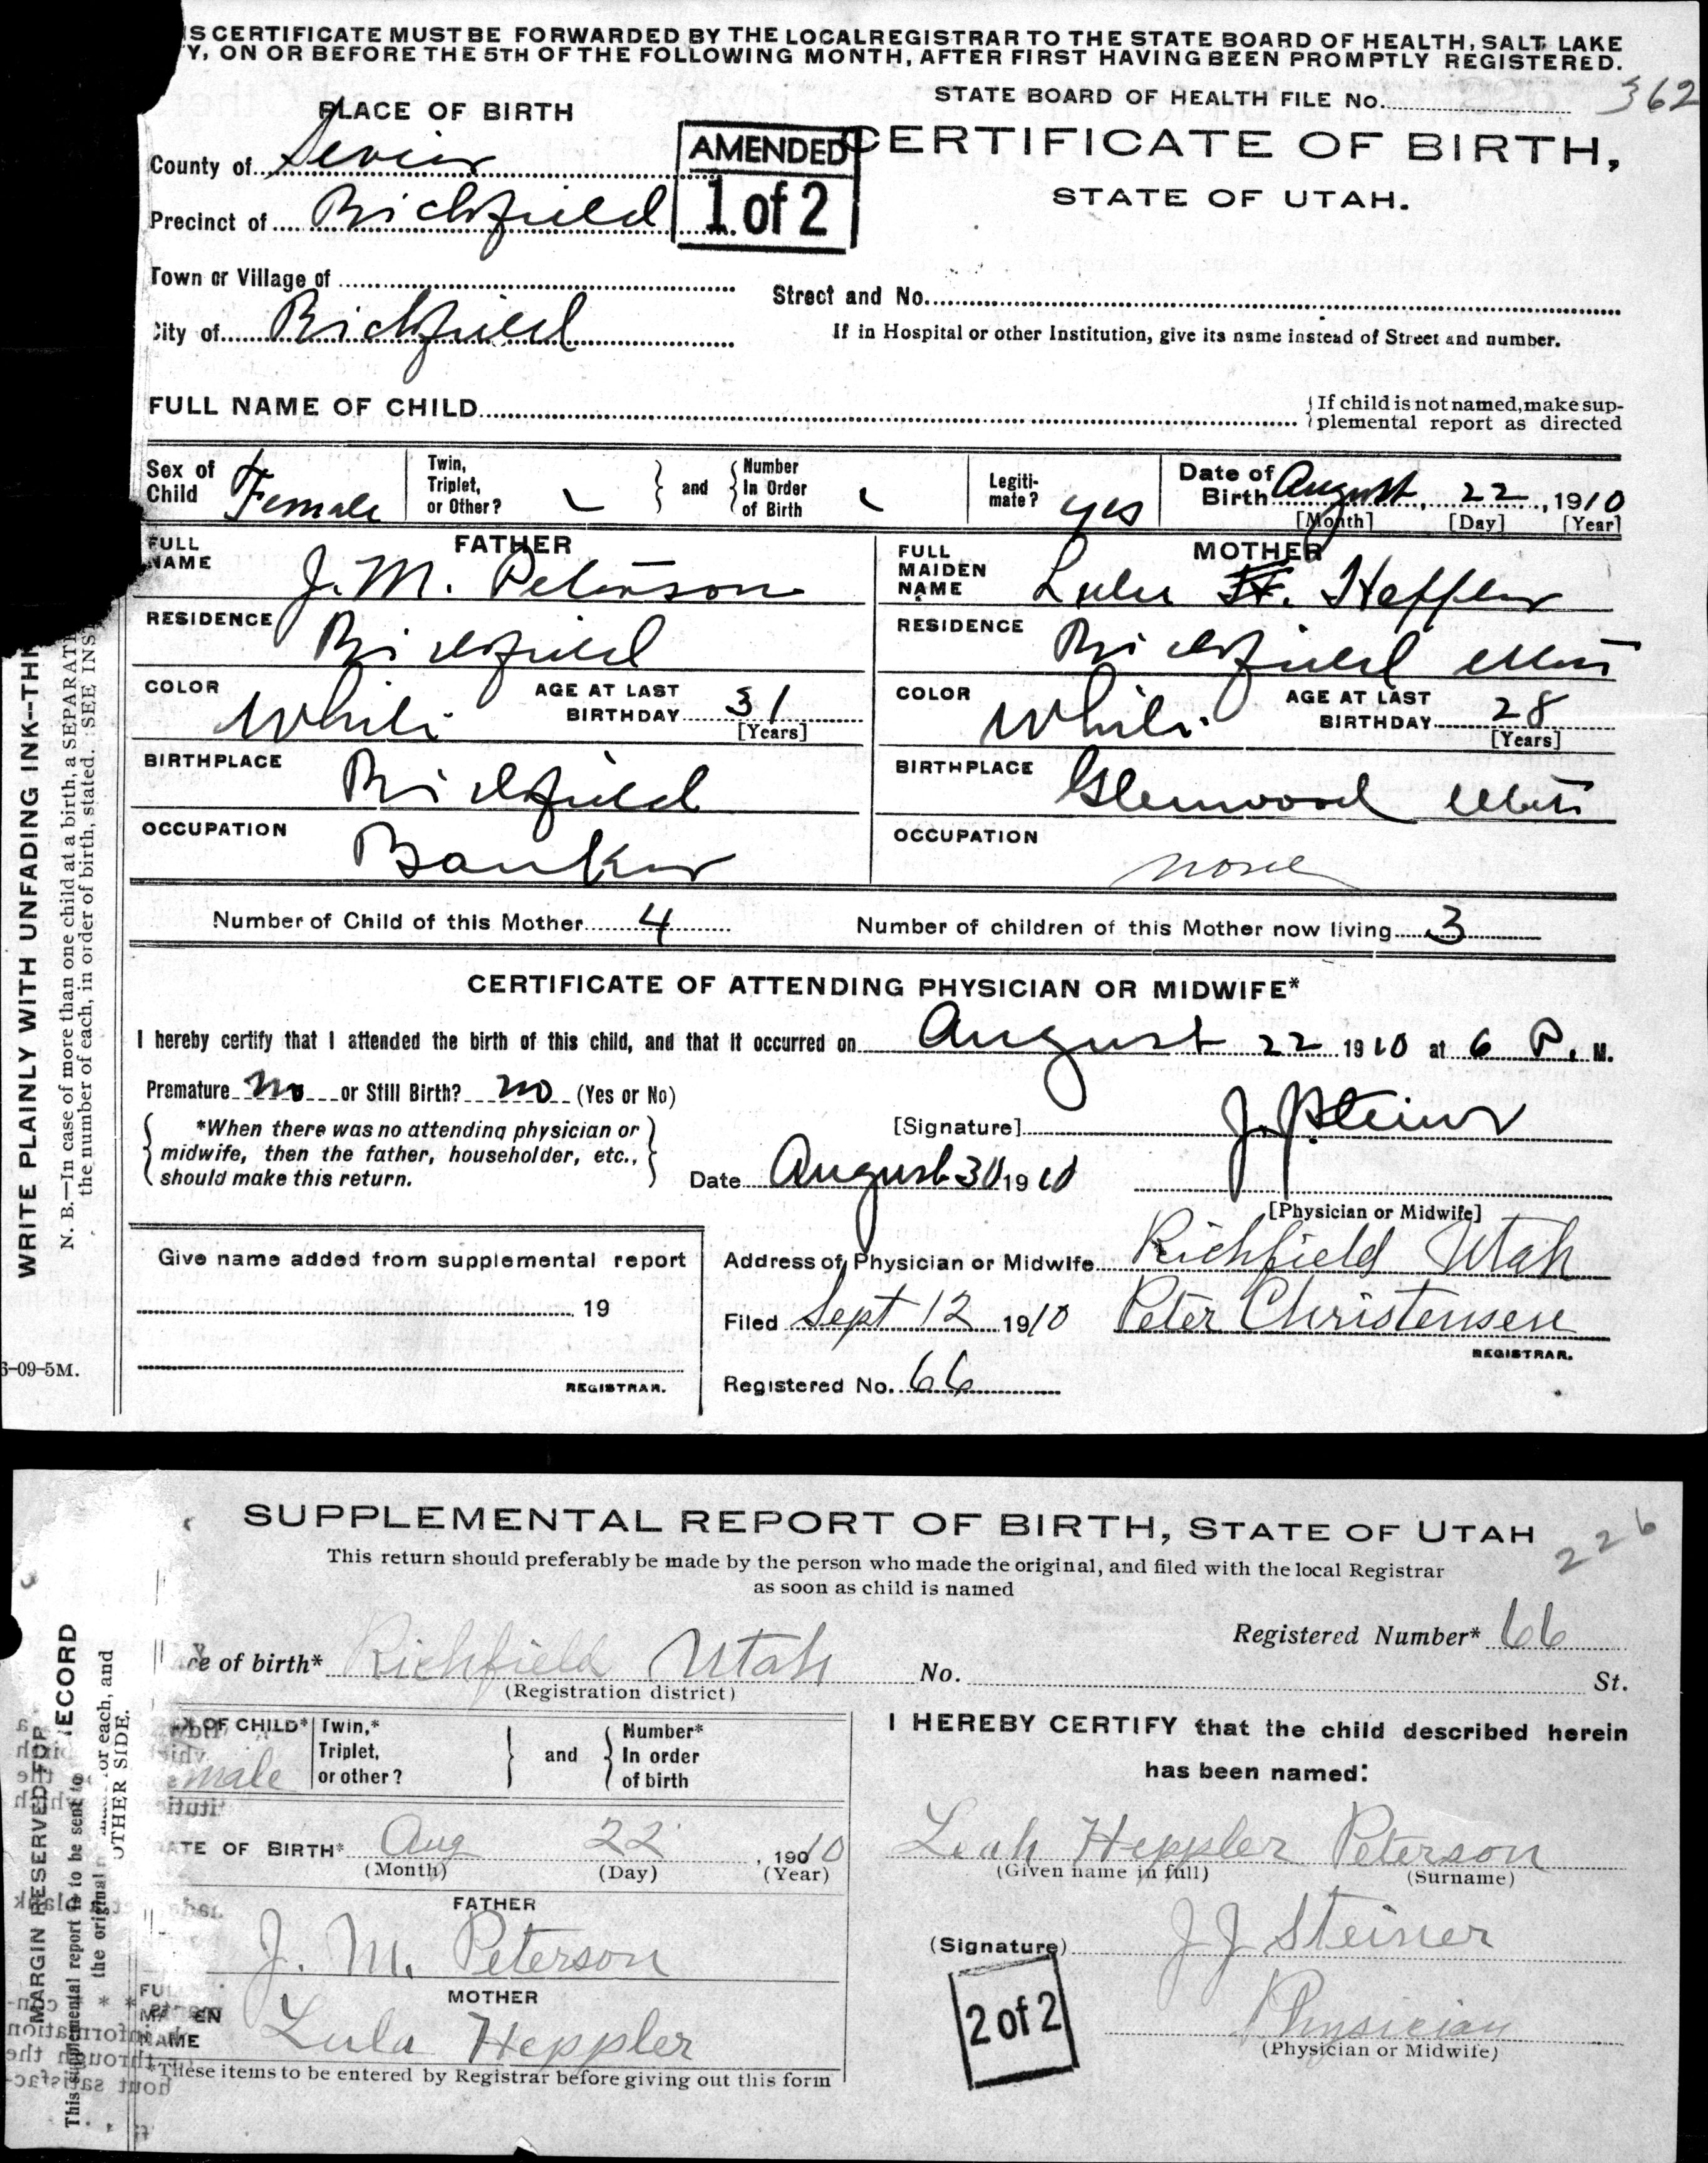 IS CERTIFICATE MUST BE FORWARDED BY THE LOCAL REGISTRAR TO THE STATE BOARD OF HEALTH, SALT LAKE
Y, ON OR BEFORE THE 5TH OF THE FOLLOWING MONTH, AFTER FIRST HAVING BEEN PROMPTLY REGISTERED.
STATE BOARD OF HEALTH FILE No. 362
PLACE OF BIRTH
AMENDED
1 of 2
CERTIFICATE OF BIRTH,
STATE OF UTAH.
County of Sevier
Precinct of Richfield
Town or Village of
Street and No.
City of Richfield
If in Hospital or other Institution, give its name instead of Street and number.
FULL NAME OF CHILD
If child is not named, make sup-
plemental report as directed
Sex of Child Female
Twin, Triplet, or Other?
and
Number In Order of Birth
Legiti-mate? yes
Date of Birth August 22, 1910
[Month] [Day] [Year]
FATHER
FULL NAME J. M. Peterson
RESIDENCE Richfield
COLOR White
AGE AT LAST BIRTHDAY 31
[Years]
BIRTHPLACE Richfield
OCCUPATION Banker
MOTHER
FULL MAIDEN NAME Lulu H. Heffler
RESIDENCE Richfield Utah
COLOR White
AGE AT LAST BIRTHDAY 28
[Years]
BIRTHPLACE Glenwood Utah
OCCUPATION none
Number of Child of this Mother 4
Number of children of this Mother now living 3
CERTIFICATE OF ATTENDING PHYSICIAN OR MIDWIFE*
I hereby certify that I attended the birth of this child, and that it occurred on August 22 1910 at 6 P. M.
Premature no or Still Birth? no (Yes or No)
*When there was no attending physician or
midwife, then the father, householder, etc.,
should make this return.
[Signature] J. J. Steiner
Date August 30 1910
[Physician or Midwife]
Give name added from supplemental report
19
REGISTRAR.
Address of Physician or Midwife Richfield Utah
Filed Sept 12 1910 Peter Christensen
REGISTRAR.
Registered No. 66
WRITE PLAINLY WITH UNFADING INK--TH
N. B.—In case of more than one child at a birth, a SEPARAT
the number of each, in order of birth, stated. SEE INS
6-09-5M.
SUPPLEMENTAL REPORT OF BIRTH, STATE OF UTAH
226
This return should preferably be made by the person who made the original, and filed with the local Registrar
as soon as child is named
Registered Number* 66
ce of birth* Richfield Utah
No. St.
(Registration district)
X OF CHILD* male
Twin,* Triplet, or other?
and
Number* In order of birth
ATE OF BIRTH* Aug 22, 1910
(Month) (Day) (Year)
FATHER
J. M. Peterson
MOTHER
NAME Lula Heppler
*These items to be entered by Registrar before giving out this form
I HEREBY CERTIFY that the child described herein
has been named:
Leah Heppler Peterson
(Given name in full) (Surname)
(Signature) J J Steiner
2 of 2
Physician
(Physician or Midwife)
MARGIN RESERVED FOR ECORD
This supplemental report is to be sent to
the original
or each, and
OTHER SIDE.